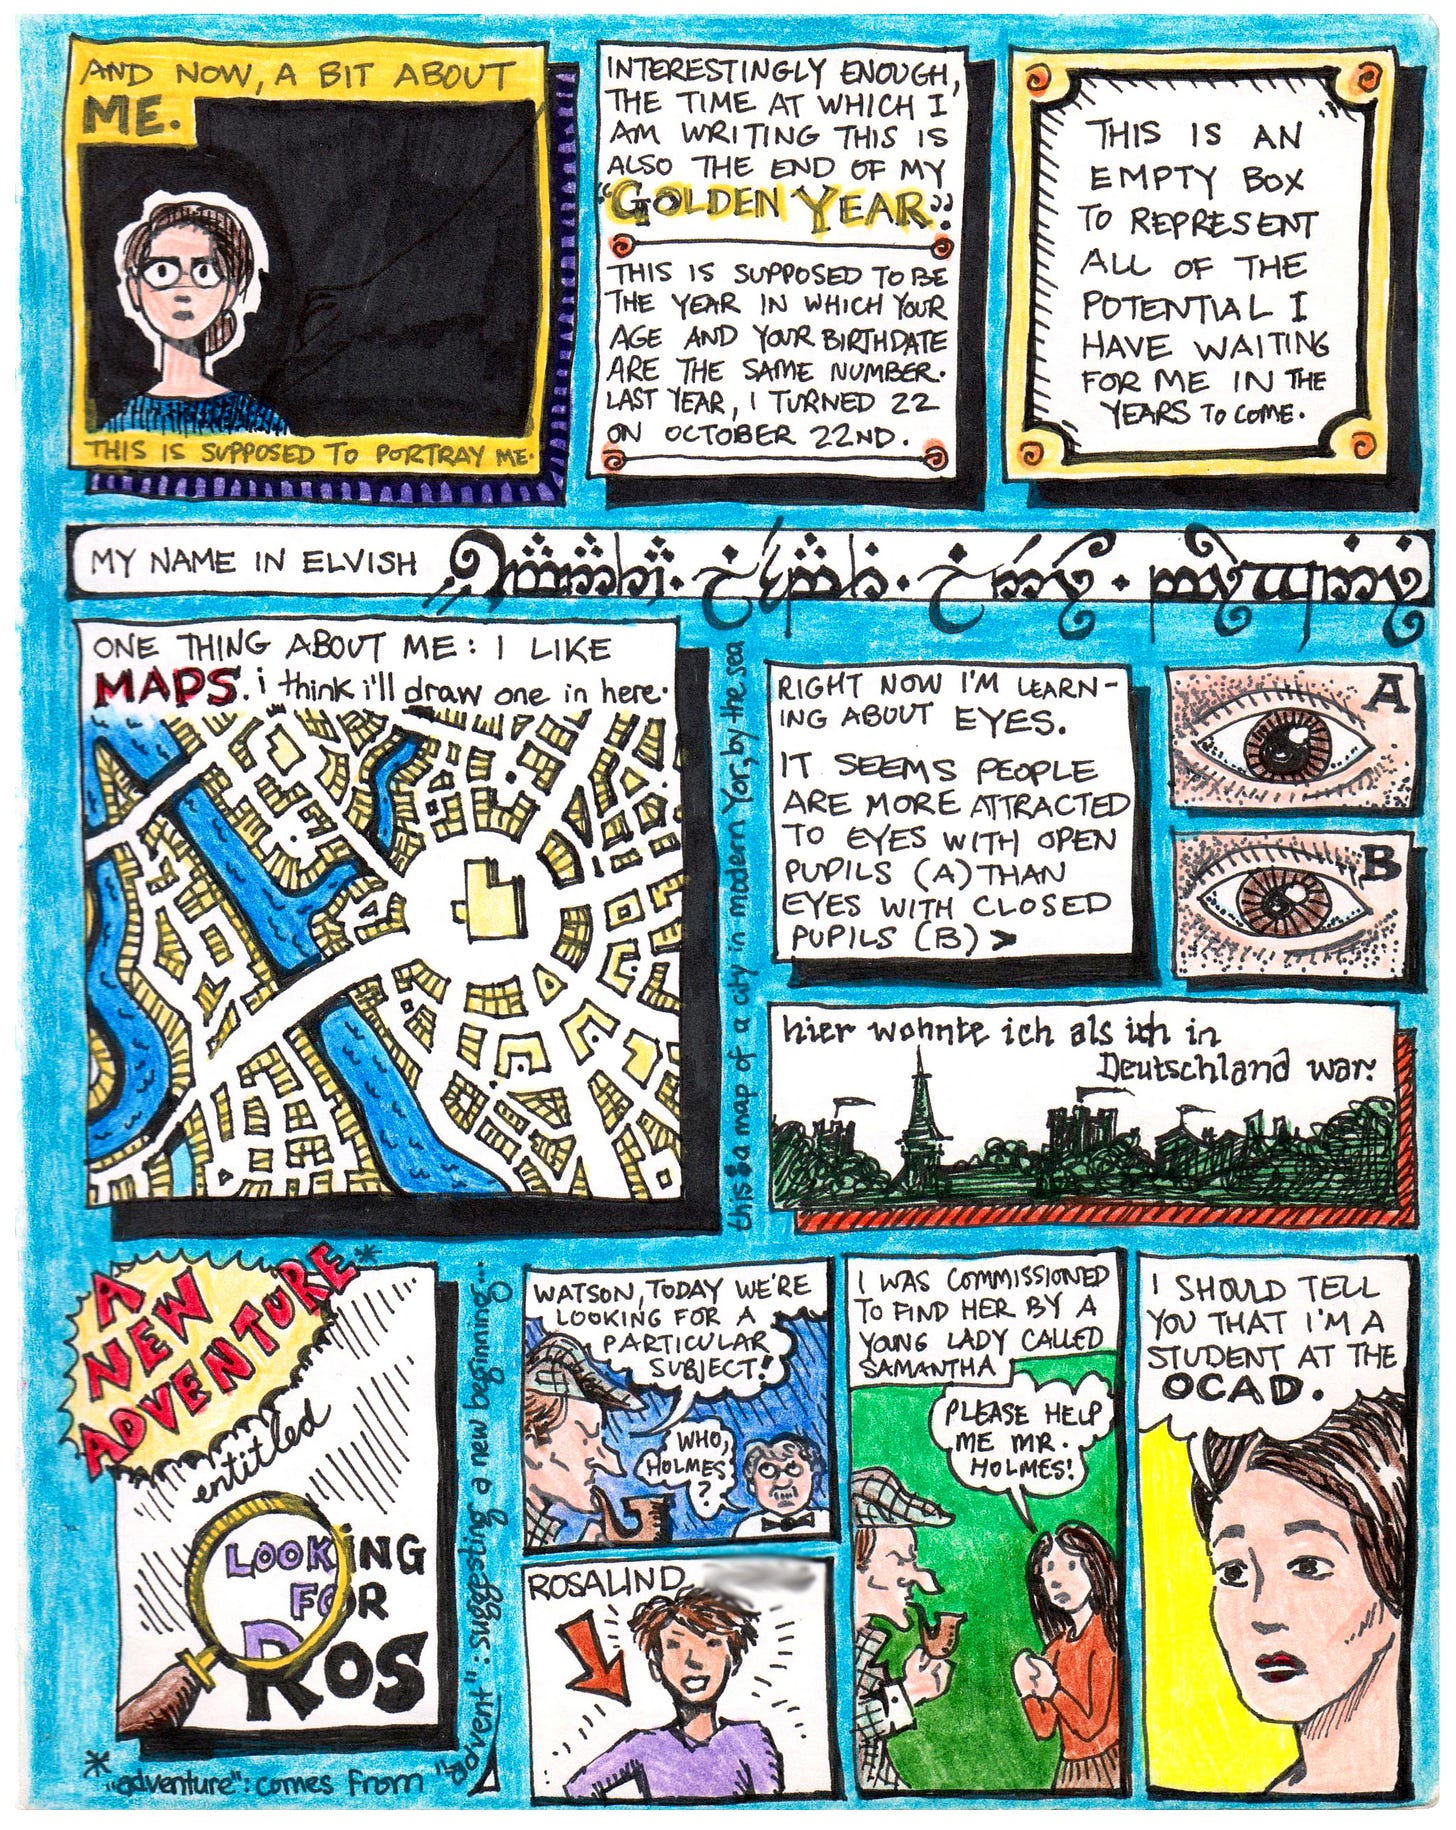 AND NOW, A BIT ABOUT
ME.
THIS IS SUPPOSED TO PORTRAY ME.
INTERESTINGLY ENOUGH,
THE TIME AT WHICH I
AM WRITING THIS IS
ALSO THE END OF MY
"GOLDEN YEAR."
THIS IS SUPPOSED TO BE
THE YEAR IN WHICH YOUR
AGE AND YOUR BIRTHDATE
ARE THE SAME NUMBER.
LAST YEAR, I TURNED 22
ON OCTOBER 22ND.
THIS IS AN
EMPTY BOX
TO REPRESENT
ALL OF THE
POTENTIAL I
HAVE WAITING
FOR ME IN THE
YEARS TO COME.
MY NAME IN ELVISH
ONE THING ABOUT ME: I LIKE
MAPS. i think i'll draw one in here.
this is a map of a city in modern Yor, by the sea
RIGHT NOW I'M LEARN-
ING ABOUT EYES.
IT SEEMS PEOPLE
ARE MORE ATTRACTED
TO EYES WITH OPEN
PUPILS (A) THAN
EYES WITH CLOSED
PUPILS (B) >
A
B
hier wohnte ich als ich in
Deutschland war.
A
NEW
ADVENTURE*
entitled
LOOKING
FOR
ROS
* "adventure": comes from "advent": suggesting a new beginning...
WATSON, TODAY WE'RE
LOOKING FOR A
PARTICULAR
SUBJECT!
WHO,
HOLMES
?
ROSALIND
I WAS COMMISSIONED
TO FIND HER BY A
YOUNG LADY CALLED
SAMANTHA
PLEASE HELP
ME MR.
HOLMES!
I SHOULD TELL
YOU THAT I'M A
STUDENT AT THE
OCAD.